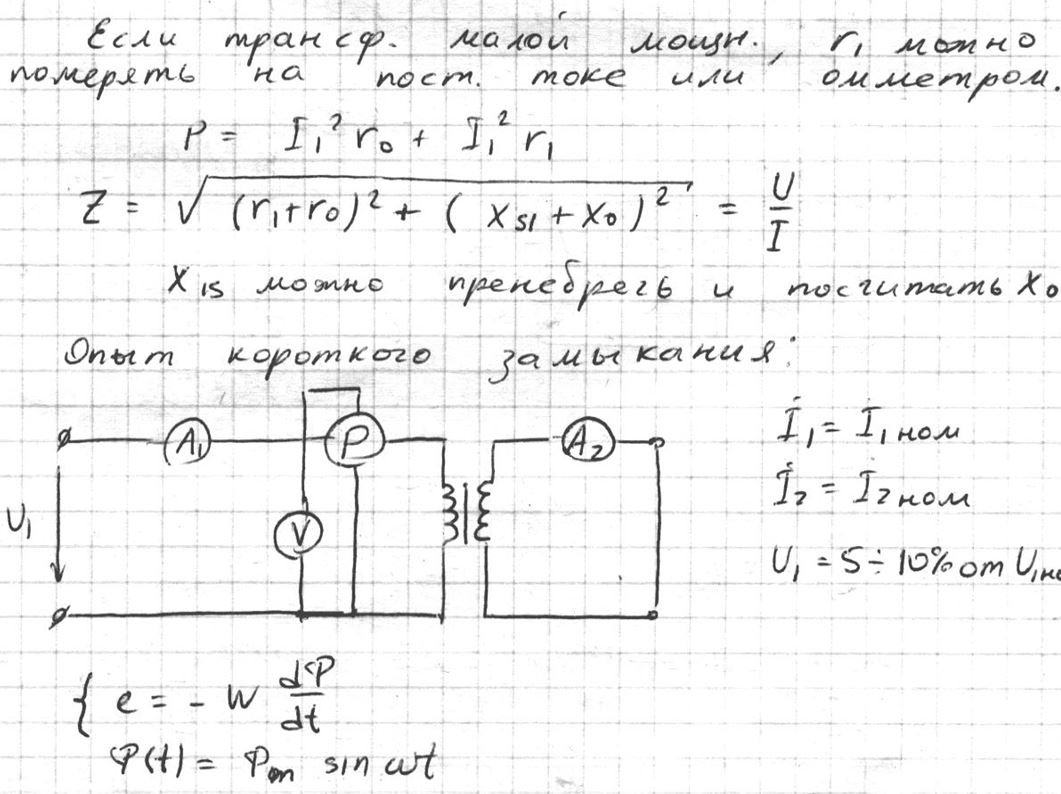 Если трансф. малой мощн., r₁ можно
померять на пост. токе или омметром.
P = I₁² r₀ + I₁² r₁
Z = √((r₁+r₀)² + (x_{S1} + x₀)²) = U/I
x_{1S} можно пренебречь и посчитать x₀
Опыт короткого замыкания:
A₁
P
A₂
V
U₁
İ₁ = İ₁ ном
İ₂ = I₂ ном
U₁ = 5 ÷ 10% от U₁но
{ e = - W dФ/dt
Ф(t) = Фm sin ωt